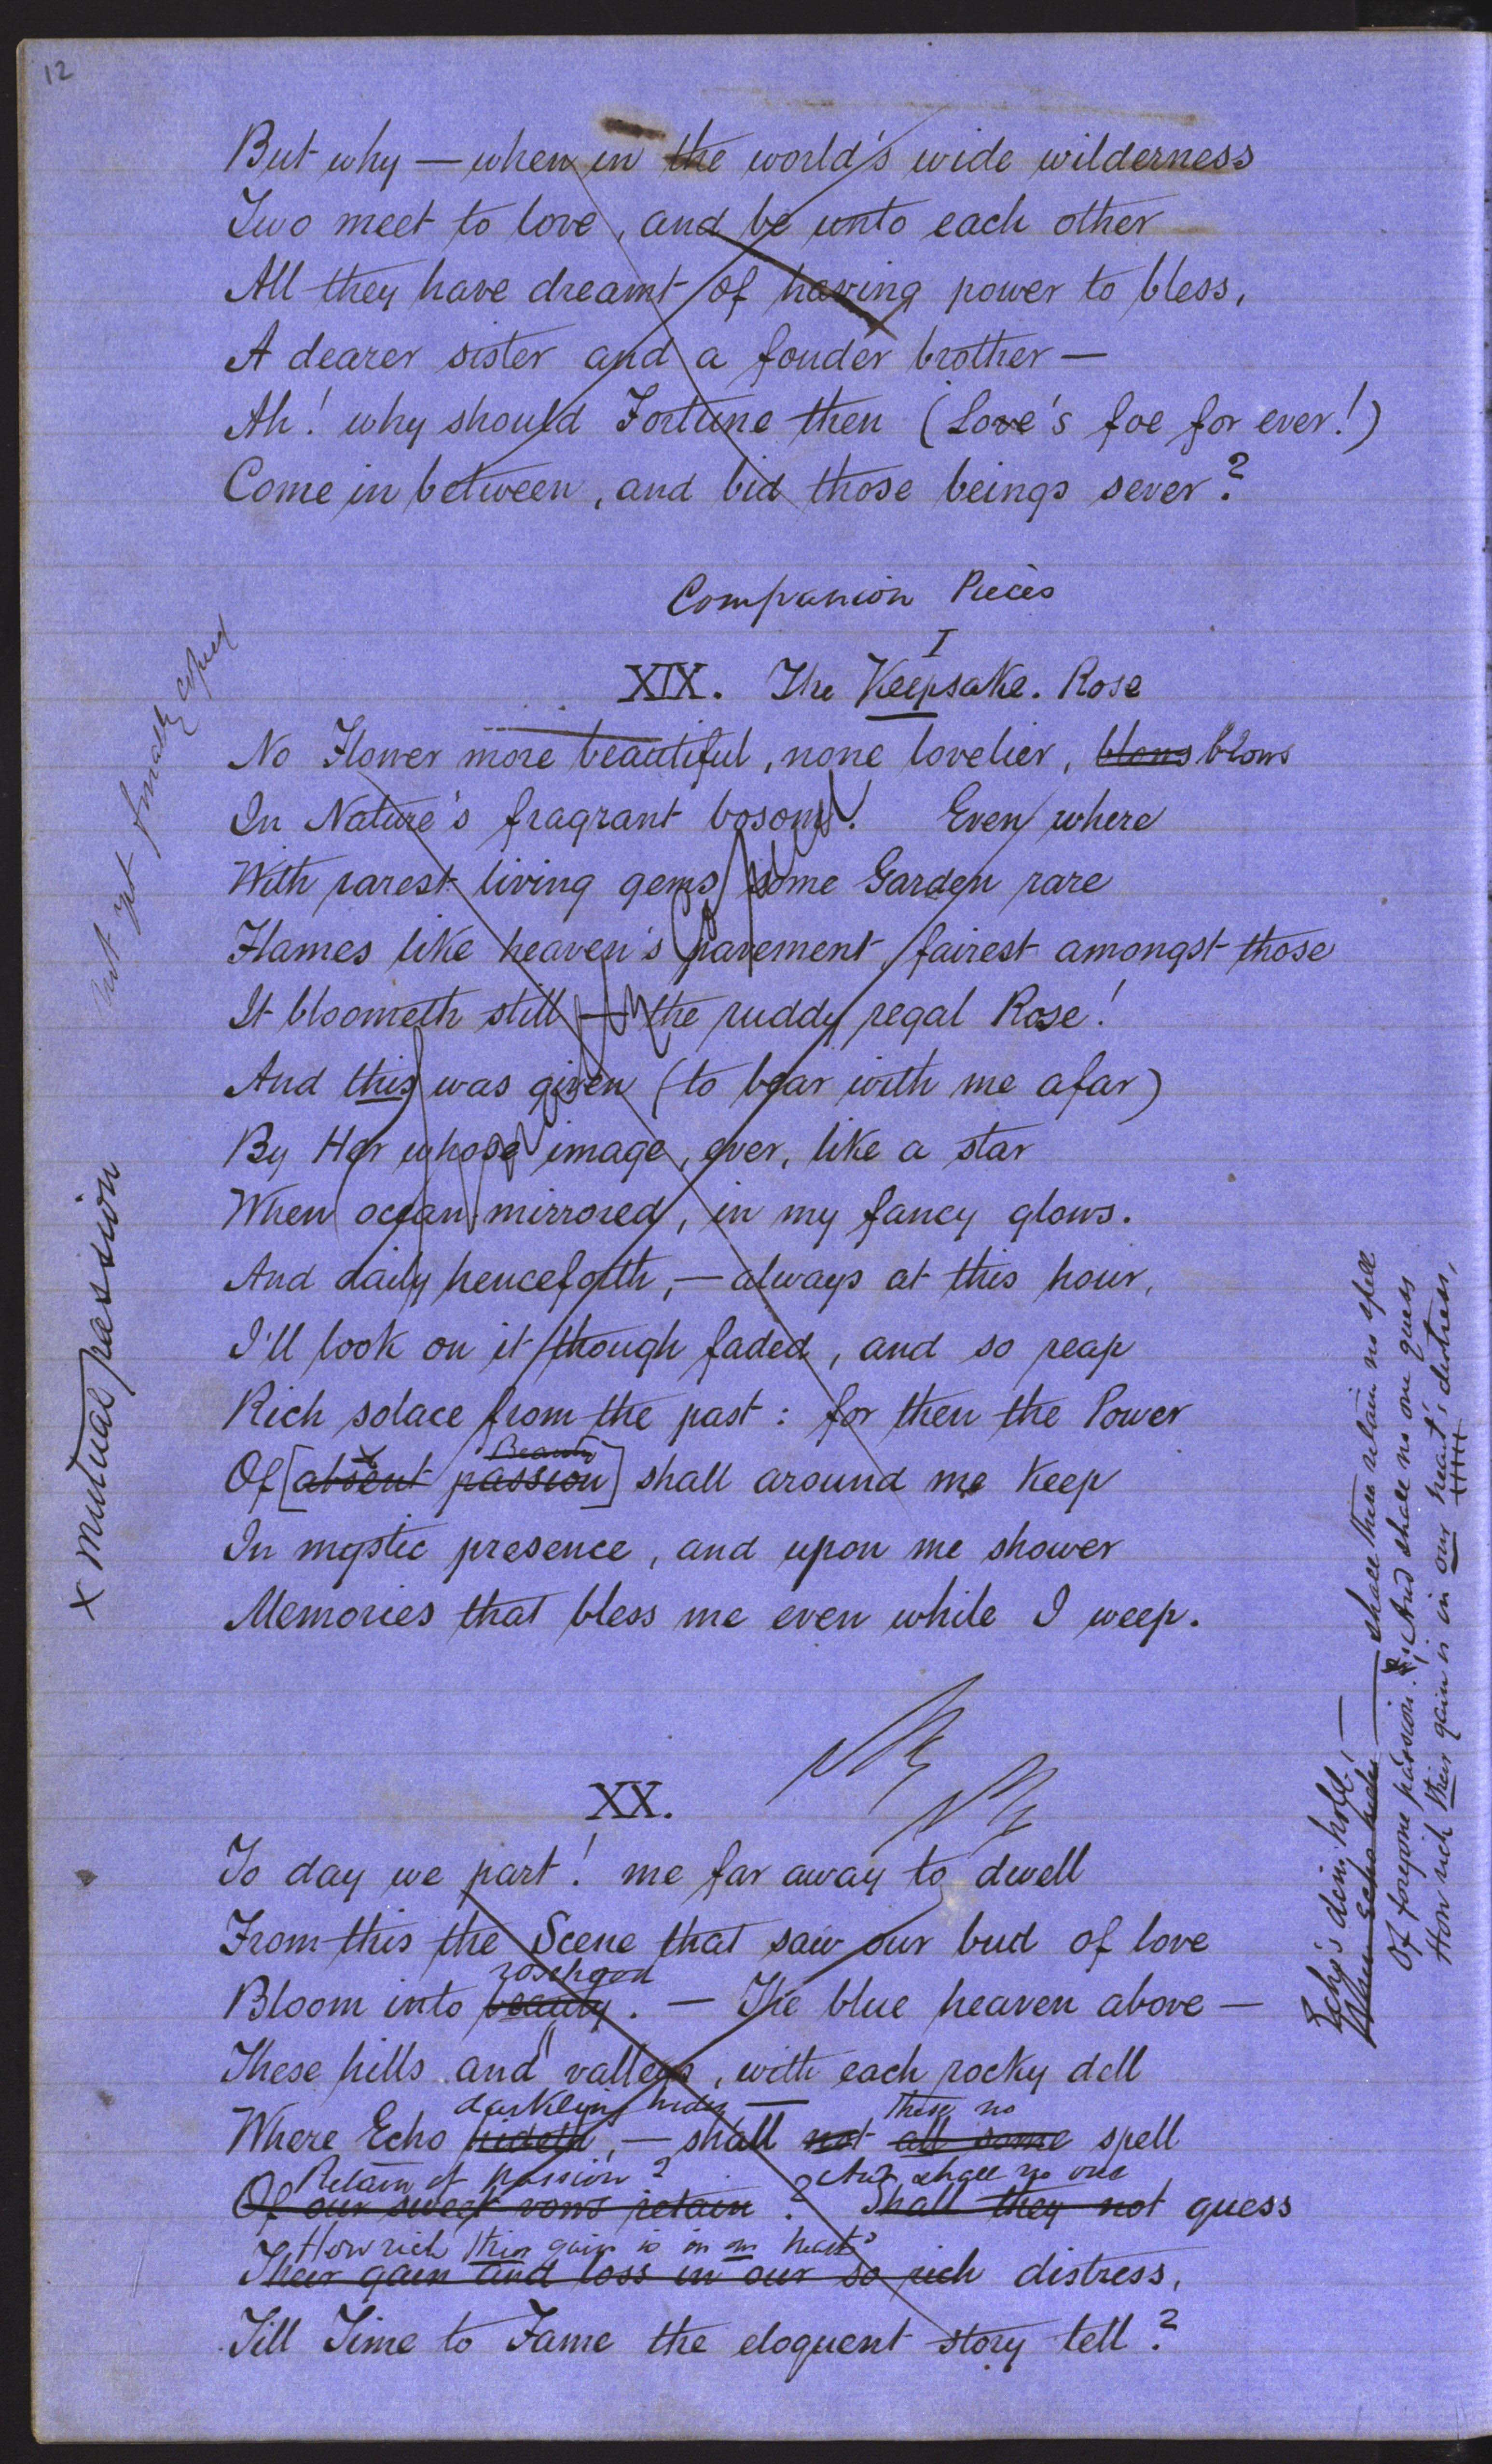 12
But why — when in the world's wide wilderness
Two meet to love, and be unto each other
All they have dreamt of having power to bless,
A dearer sister and a fonder brother —
Ah! why should Fortune then (Love's foe for ever!)
Come in between, and bid those beings sever?
Companion Pieces
I
XIX. The Keepsake. Rose
No Flower more beautiful, none lovelier, blows blows
In Nature's fragrant bosom. Even where
With rarest living gems some Garden rare
Flames like heaven's pavement, fairest amongst those
It bloometh still — the ruddy regal Rose!
And this was given (to bear with me afar)
By Her whose image, ever, like a star
When ocean-mirrored, in my fancy glows.
And daily henceforth, — always at this hour,
I'll look on it though faded, and so reap
Rich solace from the past: for then the Power
x Beauty
Of [absent passion] shall around me keep
In mystic presence, and upon me shower
Memories that bless me even while I weep.
but yet finally copied
x mutual passion
XX.
To day we part! me far away to dwell
From this the Scene that saw our bud of love
rosehood
Bloom into beauty. — The blue heaven above —
These hills and valleys, with each rocky dell
darkling hides — these no
Where Echo hideth, — shall not all some spell
Retain of passion? And shall no one
Of our sweet vows retain? Shall they not guess
How rich their gain is in our heart's
Their gain and loss in our so rich distress,
Till Time to Fame the eloquent story tell?
Echo's dim hold! —
When Echo hides — shall these retain no spell
Of foregone passion? And shall no one guess
How rich their gain is in our heart's distress,